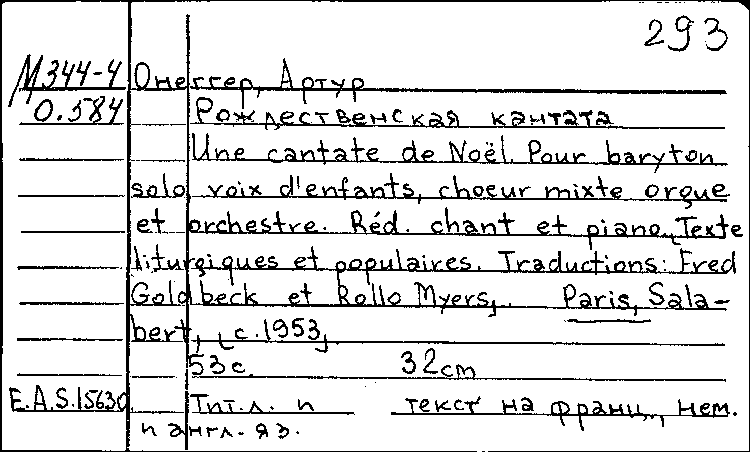 293
М344-4 Онеггер, Артур
О.584 Рождественская кантата
Une cantate de Noël. Pour baryton
solo, voix d'enfants, choeur mixte orgue
et orchestre. Réd. chant et piano. [Texte
liturgiques et populaires. Traductions: Fred
Goldbeck et Rollo Myers]. Paris, Sala-
bert, [c.1953]
53с. 32см
E.A.S.15630 Тит.л. и текст на франц., нем.
и англ. яз.